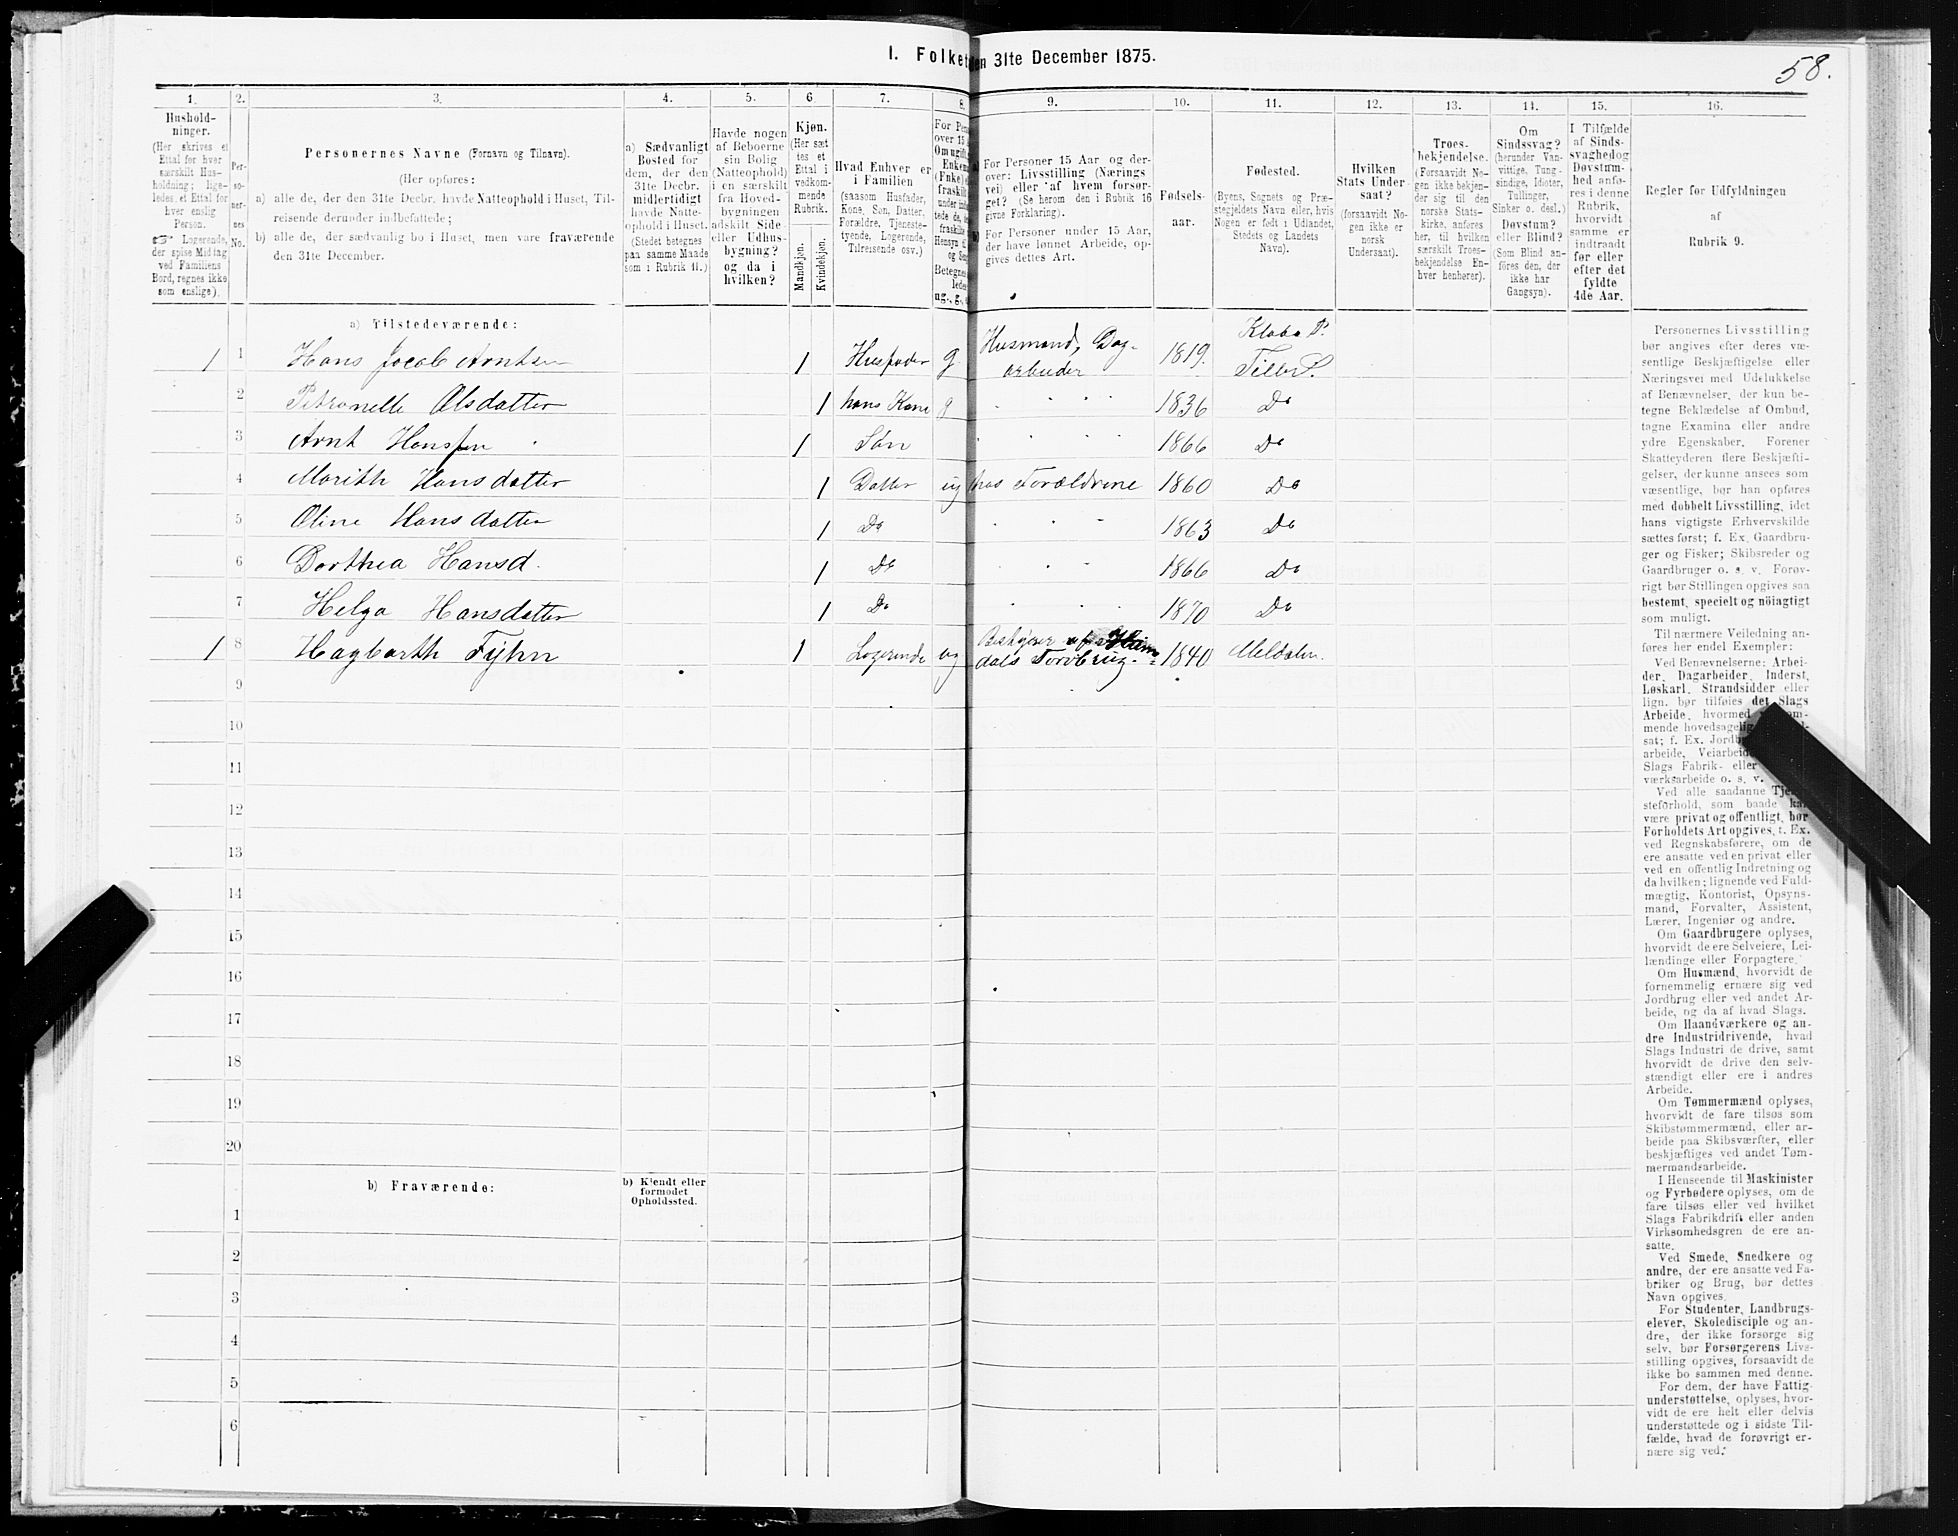 I. Folket en 31te December 1875.
58.
1.
Hushold-
ninger.
(Her skrives et
Ettal for hver
særskilt Hus-
holdning; lige-
ledes et Ettal for
hver enslig
Person.
Logerende,
der spise Middag
ved Familiens
Bord, regnes ikke
som enslige).
2.
Per-
so-
ner-
nes
No.
3.
Personernes Navne (Fornavn og Tilnavn).
(Her opføres:
a) alle de, der den 31te Decbr. havde Natteophold i Huset, Til-
reisende derunder indbefattede;
b) alle de, der sædvanlig bo i Huset, men vare fraværende
den 31te December.
4.
a) Sædvanligt
Bosted for
dem, der den
31te Decbr.
midlertidigt
havde Natte-
ophold i Huset.
(Stedet betegnes
paa samme Maade
som i Rubrik 11.)
5.
Havde nogen
af Beboerne
sin Bolig
(Natteophold)
i en særskilt
fra Hoved-
bygningen
adskilt Side-
eller Udhus-
bygning?
og da i
hvilken?
6
Kjøn.
(Her sæt-
tes et
Ettal i
vedkom-
mende
Rubrik.
Mandkjøn.
Kvindekjøn.
7.
Hvad Enhver er
i Familien
(saasom Husfader,
Kone, Søn, Datter,
Forældre, Tjeneste-
tyende, Logerende,
Tilreisende osv.)
8.
For Pers
over 15
Om ugift
Enkem
(Enke) e
fraskilt
ug., g.,
9.
For Personer 15 Aar og der-
over: Livsstilling (Nærings-
vei) eller af hvem forsør-
get? (Se herom den i Rubrik 16
givne Forklaring).
For Personer under 15 Aar,
der have lønnet Arbeide, op-
gives dettes Art.
10.
Fødsels-
aar.
11.
Fødested.
(Byens, Sognets og Præ-
stegjeldets Navn eller, hvis
Nogen er født i Udlandet,
Stedets og Landets
Navn).
12.
Hvilken
Stats Under-
saat?
(forsaavidt No-
gen ikke er
norsk
Undersaat).
13.
Troes-
bekjendelse.
(Forsaavidt No-
gen ikke bekjen-
der sig til den
norske Stats-
kirke, anføres
her, til hvilken
særskilt Troes-
bekjendelse En-
hver henhører).
14.
Om
Sindssvag?
(herunder Van-
vittige, Tung-
sindige, Idioter,
Tullinger,
Sinker o. desl.)
Døvstum?
eller Blind?
(Som Blind an-
føres den, der
ikke har
Gangsyn).
15.
I Tilfælde
af Sinds-
svaghed og
Døvstum-
hed anfø-
res i denne
Rubrik,
hvorvidt
samme er
indtraadt
før eller
efter det
fyldte
4de Aar.
16.
Regler for Udfyldningen
af
Rubrik 9.
a) Tilstedeværende:
1 1 Hans Jacob Arntsen 1 Husfader g Husmand, Dag-
arbeider 1819. Klæbo P.
Tiller S.
2 Petronelle Olsdatter 1 hans Kone g " " " " 1836 Do
3 Arnt Hansen 1 Søn " " " " 1866 Do
4 Marith Hansdatter 1 Datter ug hos Forældrene 1860 Do
5 Oline Hansdatter 1 Do " " " 1863 Do
6 Dorthea Hansd. 1 Do 1866 Do
7 Helga Hansdatter 1 Do " " " 1870 Do
1 8 Hagbarth Fyhn 1 Logerende ug Bestyrer af Heim-
dals Torvbrug. 1840 Meldalen.
9
10
11
12
13
14
15
16
17
18
19
20
b) Fraværende:
b) Kjendt eller
formodet
Opholdssted.
1
2
3
4
5
6
Personernes Livsstilling
bør angives efter deres væ-
sentlige Beskjæftigelse eller
Næringsvei med Udelukkelse
af Benævnelser, der kun be-
tegne Beklædelse af Ombud,
tagne Examina eller andre
ydre Egenskaber. Forener
Skatteyderen flere Beskjæfti-
gelser, der kunne ansees som
væsentlige, bør han opføres
med dobbelt Livsstilling, idet
hans vigtigste Erhvervskilde
sættes først; f. Ex. Gaardbru-
ger og Fisker; Skibsreder og
Gaardbruger o. s. v. Forøv-
rigt bør Stillingen opgives saa
bestemt, specielt og nøiagtigt
som muligt.
Til nærmere Veiledning an-
føres her endel Exempler:
Ved Benævnelserne: Arbei-
der, Dagarbeider, Inderst,
Løskarl, Strandsidder eller
lign. bør tilføies det Slags
Arbeide, hvormed
mende hovedsagelig
sat; f. Ex. Jordb
arbeide, Veiarbeid
Slags Fabrik- eller
værksarbeide o. s. v.
Ved alle saadanne Tje
steforhold, som baade
være privat og offentligt, bør
Forholdets Art opgives, t. Ex.
ved Regnskabsførere, om de
ere ansatte ved en privat eller
ved en offentlig Indretning og
da hvilken; lignende ved Fuld-
mægtig, Kontorist, Opsyns-
mand, Forvalter, Assistent,
Lærer, Ingeniør og andre.
Om Gaardbrugere oplyses,
hvorvidt de ere Selveiere, Lei-
lændinge eller Forpagtere.
Om Husmænd, hvorvidt de
fornemmelig ernære sig ved
Jordbrug eller ved andet Ar-
beide, og da af hvad Slags.
Om Haandværkere og an-
dre Industridrivende, hvad
Slags Industri de drive, samt
hvorvidt de drive den selv-
stændigt eller ere i andres
Arbeide.
Om Tømmermænd oplyses,
hvorvidt de fare tilsøs som
Skibstømmermænd, eller ar-
beide paa Skibsværfter, eller
beskjæftiges ved andet Tøm-
mermandsarbeide.
I Henseende til Maskinister
og Fyrbødere oplyses, om de
fare tilsøs eller ved hvilket
Slags Fabrikdrift eller anden
Virksomhedsgren de ere an-
satte.
Ved Smede, Snedkere og
andre, der ere ansatte ved Fa-
briker og Brug, bør dettes
Navn opgives.
For Studenter, Landbrugs-
elever, Skoledisciple og an-
dre, der ikke forsørge sig
selv, bør Forsørgerens Livs-
stilling opgives, forsaavidt de
ikke bo sammen med denne.
For dem, der have Fattig-
understøttelse, oplyses, hvor-
vidt de ere helt eller delvis
understøttede og i sidste Til-
fælde, hvad de forøvrigt er-
nære sig ved.